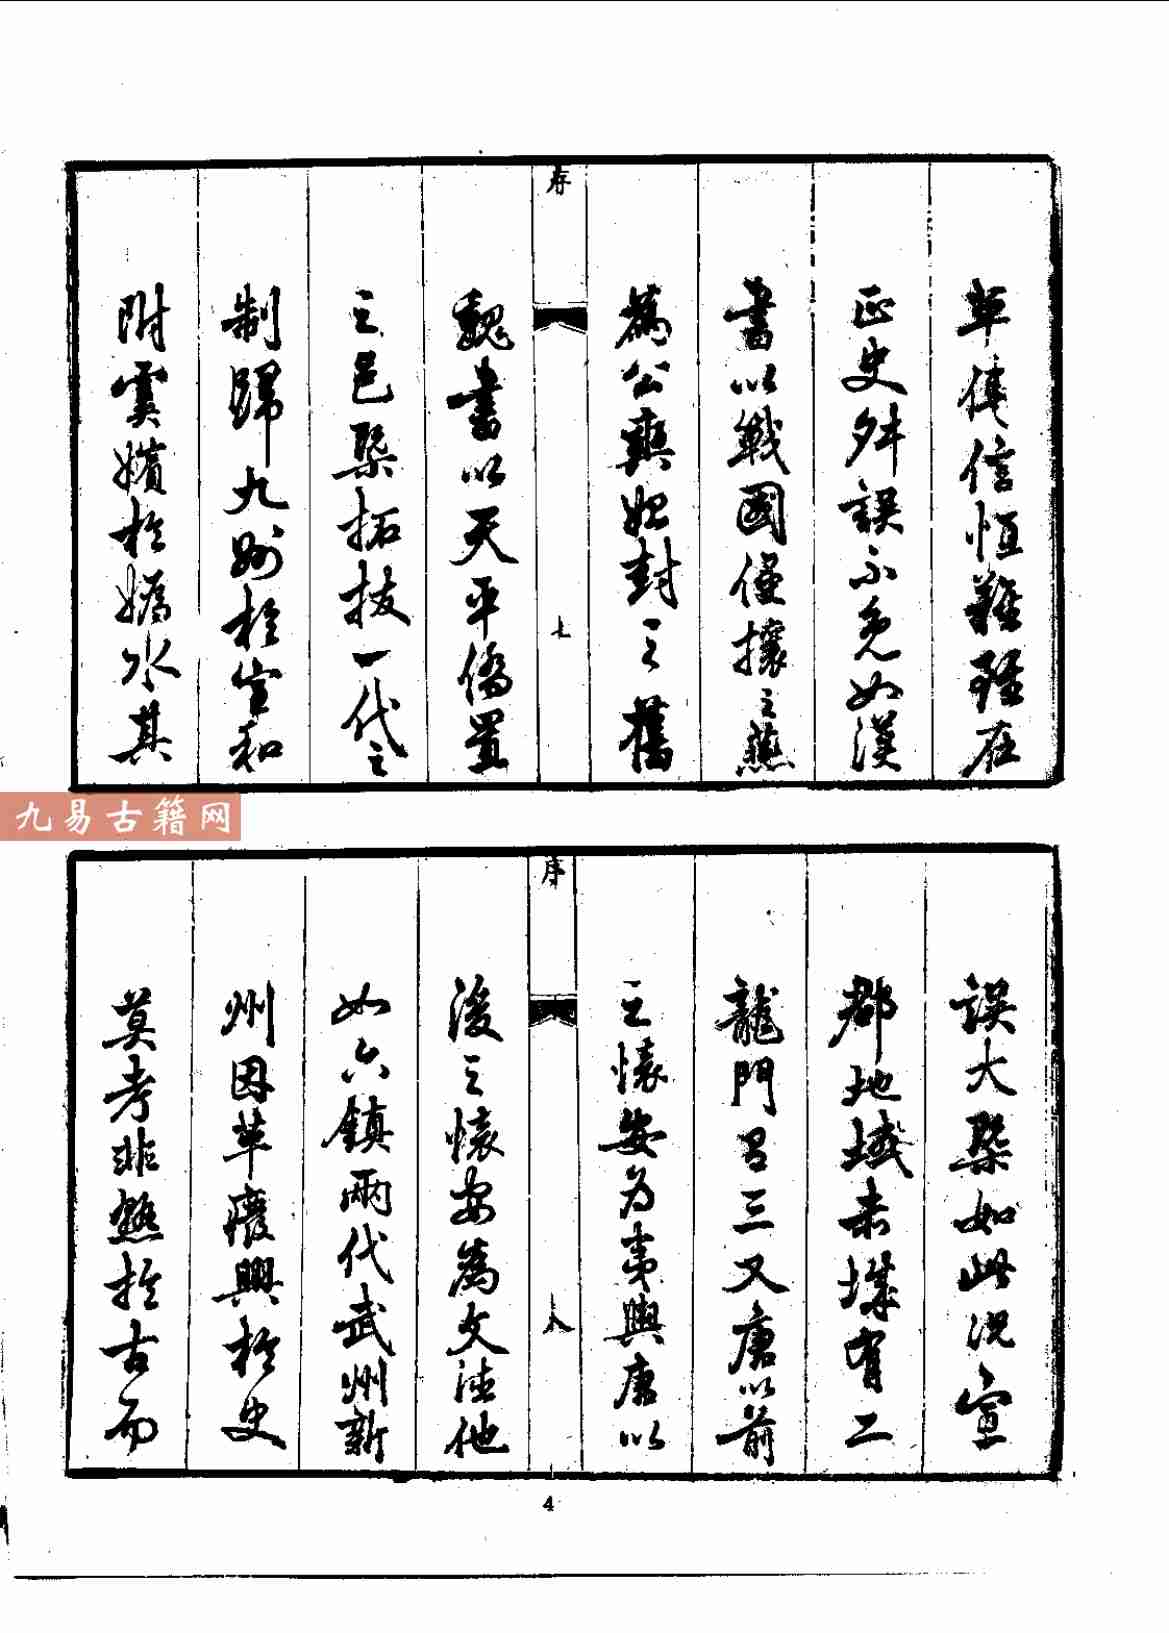 草傳信恒難強在
正史舛誤不免如漢
書以戰國僅攘之燕
為公奭始封之舊
序
七
魏書以天平僑置
之邑槩拓拔一代之
制歸九州於宣和
附虞嬪於媯水其
九易古籍网
誤大槩如此況宣
郡地域未堞有二
龍門呂三又唐以前
之懷安為夷輿唐以
序
八
後之懷安為文德他
如六鎮兩代武州新
州因革廢興於史
莫考非熟於古而
4